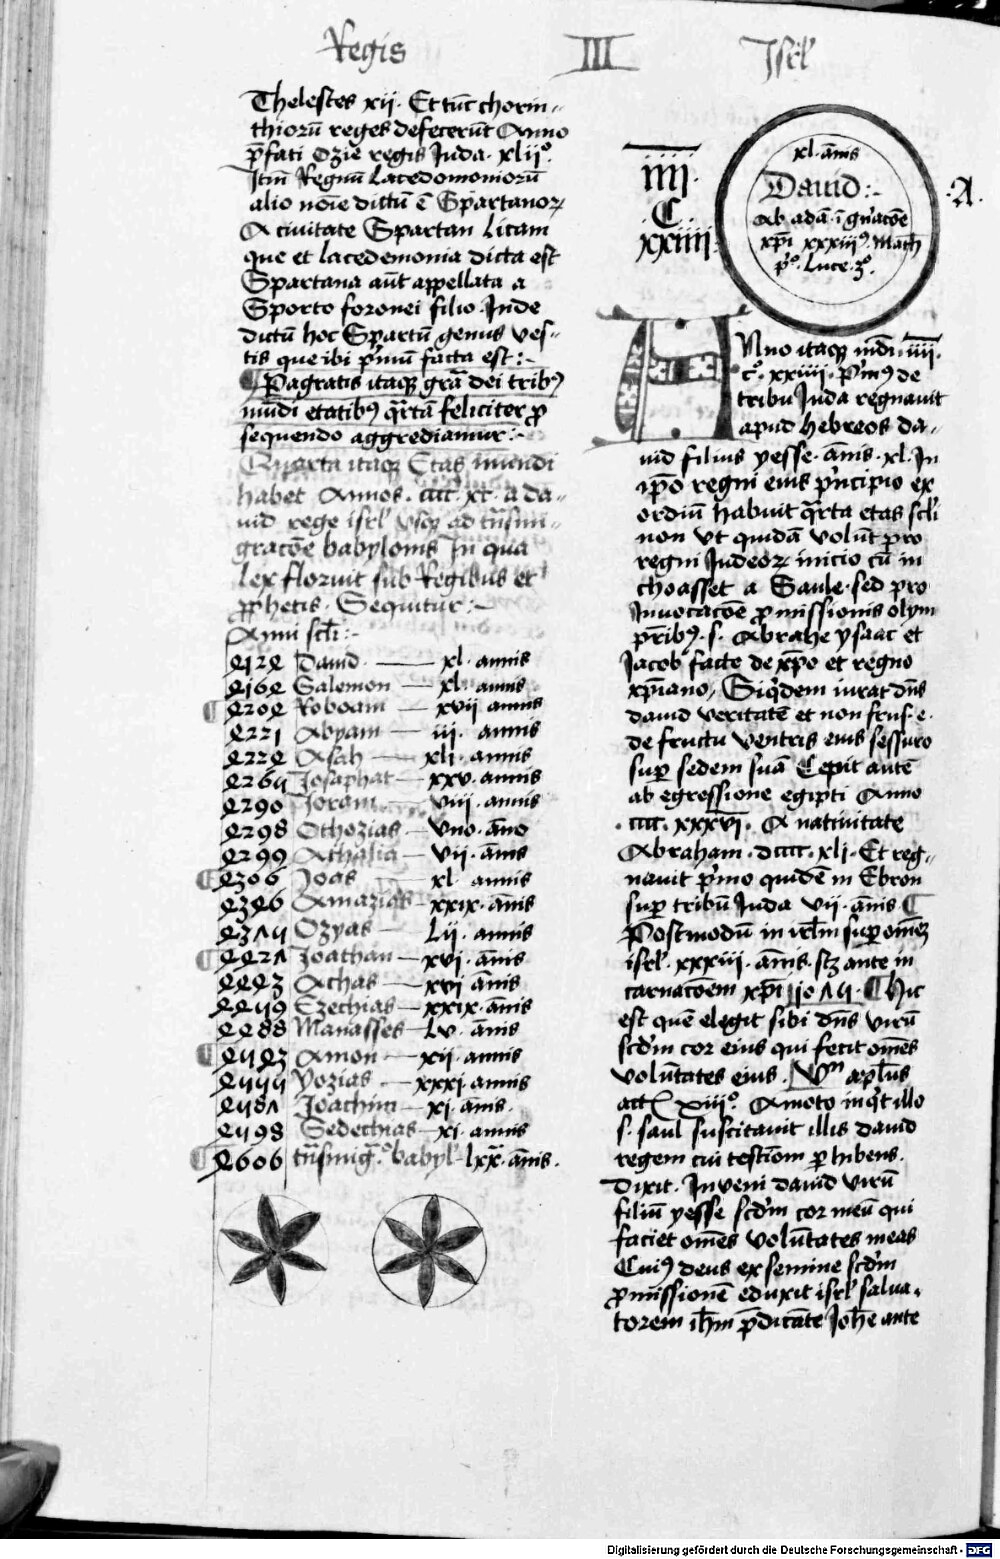 Regis III Isrl̄
Thelestes xii. Et tūc chorin-
thiorū reges defecerūt Anno
p̄fati Ozie regis Juda. xlii°.
Itm̄ Regnū Lacedomoniorū
alio noīe dictū ē Spartanoꝝ
A civitate Spartan Licam
que et lacedemonia dicta est
Spartana aūt appellata a
Sporto foronei filio. Inde
dictū hoc Spartū genus ves-
tis que ibi p̄mū facta est :-
Pagratis itaqꝫ gr̄a dei tribꝰ
mūdi etatibꝰ q̄rtā feliciter ꝓ
sequendo aggrediamur :-
Quarta itaqꝫ Etas mundi
habet Annos. cccc. xc. a da-
uid rege isrl̄ vsqꝫ ad tn̄smi-
gracōe babylonis In qua
lex floruit sub Regibus et
ꝓphetis. Sequitur :-
Anni scl̄i :-
4124 Dauid — xl. annis
4164 Salemon — xl. annis
4204 Roboam — xvii annis
4221 Abyam — iii. annis
4224 Asah — xli. annis
4265 Josaphat — xxv. annis
4290 Joram — viii. annis
4298 Othozias — vno. āno
4299 Athalia — vii. ānis
4306 Joas — xl. annis
4346 Amazias — xxix. ānis
4375 Ozyas — Lii. annis
4427 Joathan — xvi. ānis
4443 Achas — xvi ānis
4459 Ezechias — xxix. ānis
4488 Manasses — Lv. ānis
4543 Amon — xii. annis
4555 Yozias — xxxi. annis
4587 Joachim — xi. ānis.
4598 Sedechias — xi. annis
4606 tn̄smiḡ.° babyl — lxx. ānis.
iiii.
.C.
xxiiii
xl. ānis
Dauid :-
Ab adā ī gn̄acōe
xp̄i xxxiiiꝰ. Math
p°. Luce. 3°.
.A.
ANno itaqꝫ mūdi. iiii.
c°. xxiiii. P̄mꝰ de
tribu Juda regnauit
apud hebreos da-
uid filius yesse. ānis. xl. In
ip̄o regni eius p̄ncipio ex
ordiū habuit q̄rta etas scl̄i
non vt quidā volūt pro
regni Judeoꝝ inicio cū in
choasset a Saule. sed pro
Inuocacōe ꝓmissionis olym
p̄ribꝰ. s. Abrahe ysaac et
Jacob facte de xp̄o et regno
xp̄iano, Siq̄dem iurat dn̄s
dauid veritatē et non frus. e.
de fructu ventris eius sessuro
suꝑ sedem suā Cepit autē
ab egressione egipti Anno
. cccc. xxxvi. A natiuitate
Abraham. dcccc. xli. Et reg-
nauit p̄mo quidē in Ebron
suꝑ tribū Juda vii. ānis
Postmodū in irl̄m suꝑ omēꝫ
isrl̄. xxxiii. ānis. sꝫ ante in
carnacōem xp̄i 1075. Hic
est quē elegit sibi dn̄s virū
scd̄m cor eius qui fecit omēs
volūtates eius. Vn̄ apl̄us
act xiii°. Amoto inq̄t illo
s. saul suscitauit illis dauid
regem cui testiōm ꝑhibens.
Dixit. Inveni dauid virū
filiū yesse scd̄m cor meū qui
faciet omēs volūtates meas
Cuiꝰ deus ex semine scd̄m
ꝓmissionē eduxit isrl̄ salua-
torem ih̄m p̄dicāte Joh̄e ante
Digitalisierung gefördert durch die Deutsche Forschungsgemeinschaft - DFG